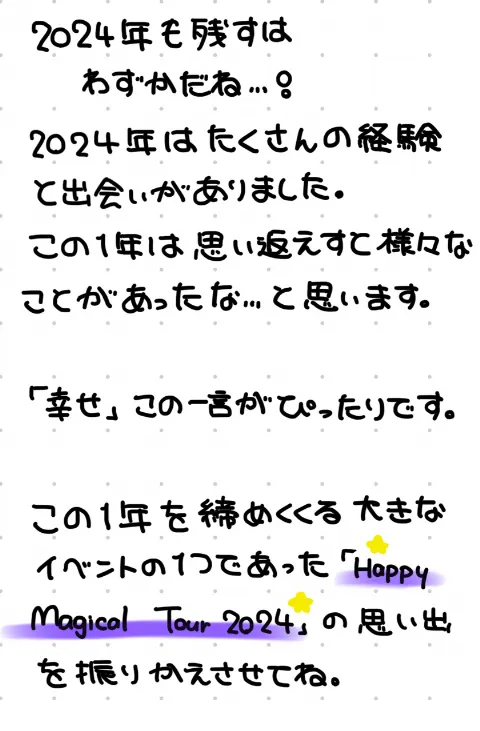 2024年も残すは
わずかだね...。
2024年はたくさんの経験
と出会いがありました。
この1年は思い返えすと様々な
ことがあったな...と思います。
「幸せ」この一言がぴったりです。
この1年を締めくくる大きな
イベントの1つであった「Happy
Magical Tour 2024」の思い出
を振りかえさせてね。